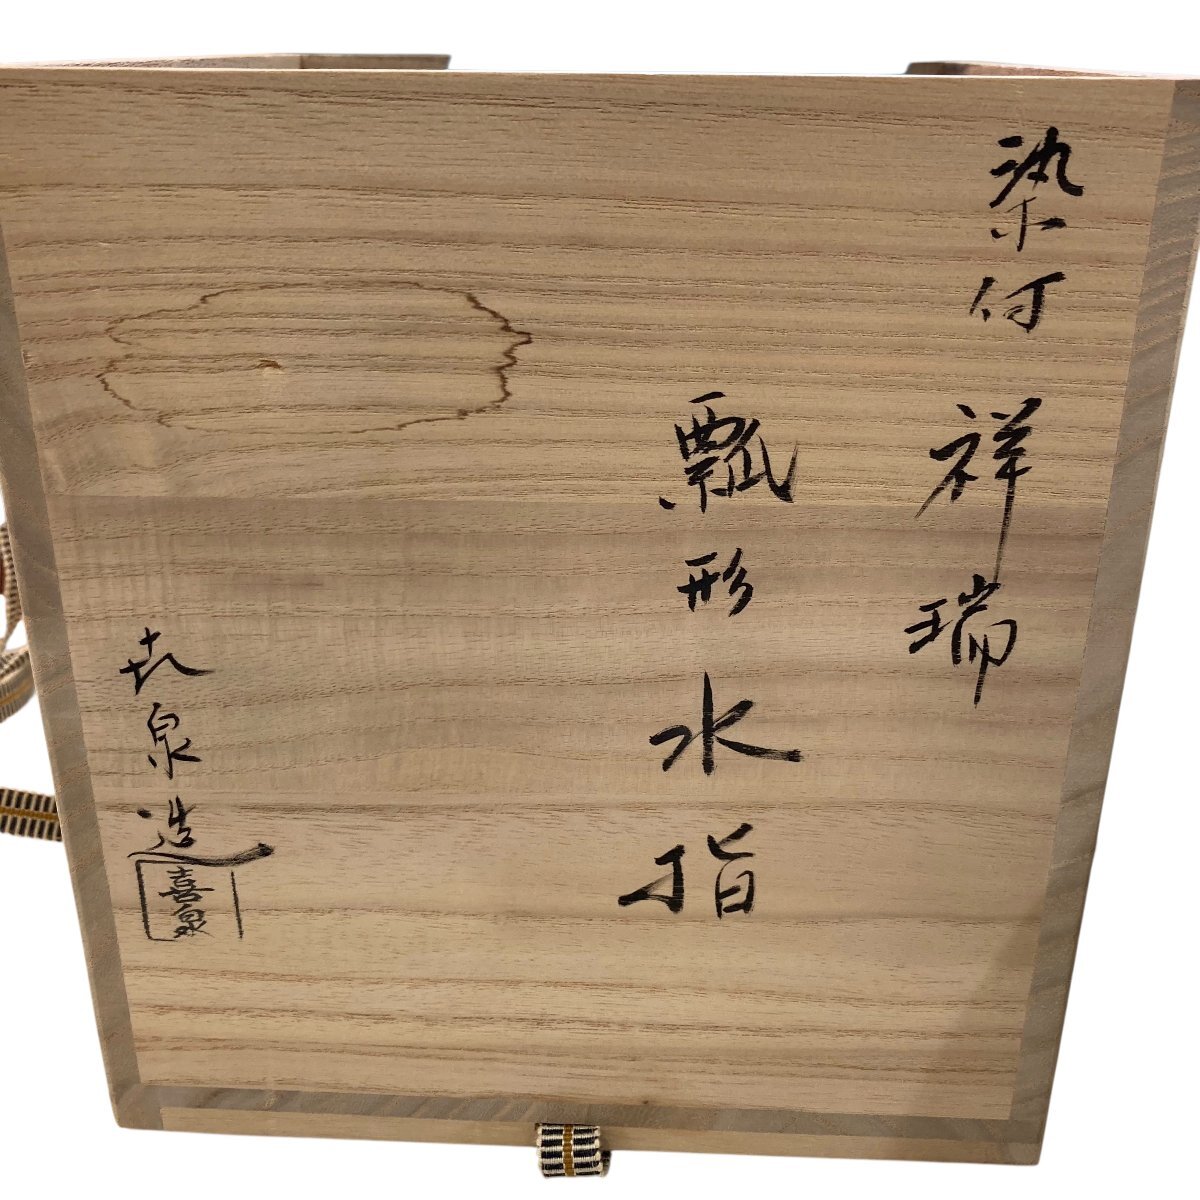 染付 祥瑞
瓢形水指
㐂泉造
喜泉